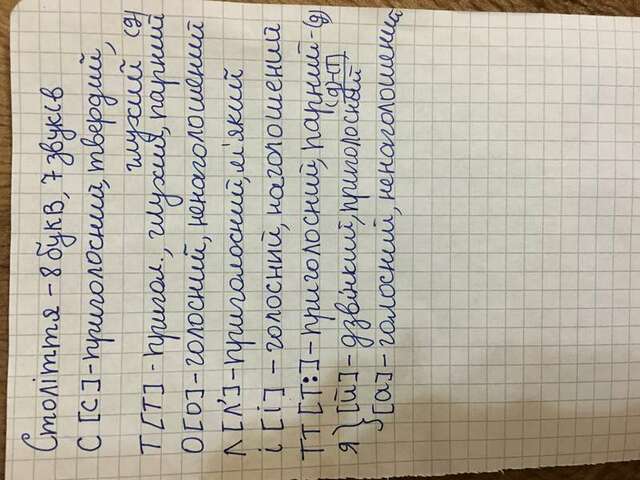 Століття - 8 букв, 7 звуків
С [с] - приголосний, твердий,
глухий
Т [т] - пригол., глухий, парний (д)
О [о] - голосний, ненаголошений
Л [л'] - приголосний, м'який
і [і] - голосний, наголошений
ТТ [т:] - приголосний, парний - (д)
(д-т)
я } [й] - дзвінкий, приголосный
[а] - голосний, ненаголошений